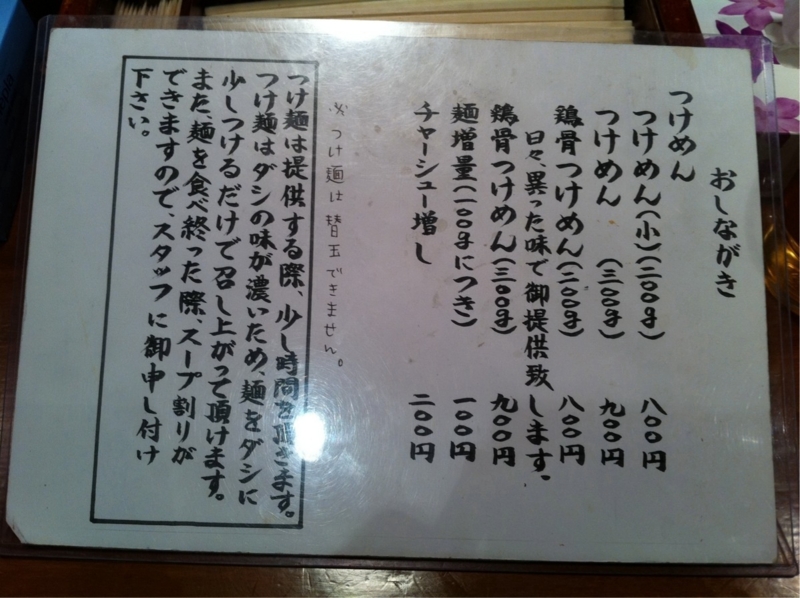 おしながき
つけめん
つけめん(小)(二〇〇g) 八〇〇円
つけめん (三〇〇g) 九〇〇円
鶏骨つけめん(二〇〇g) 八〇〇円
日々、異った味で御提供致します。
鶏骨つけめん(三〇〇g) 九〇〇円
麺増量(一〇〇gにつき) 一〇〇円
チャーシュー増し 二〇〇円
※つけ麺は替玉できません。
つけ麺は提供する際、少し時間を頂きます。
つけ麺はダシの味が濃いため、麺をダシに
少しつけるだけで召し上がって頂けます。
また、麺を食べ終った際、スープ割りが
できますので、スタッフに御申し付け
下さい。